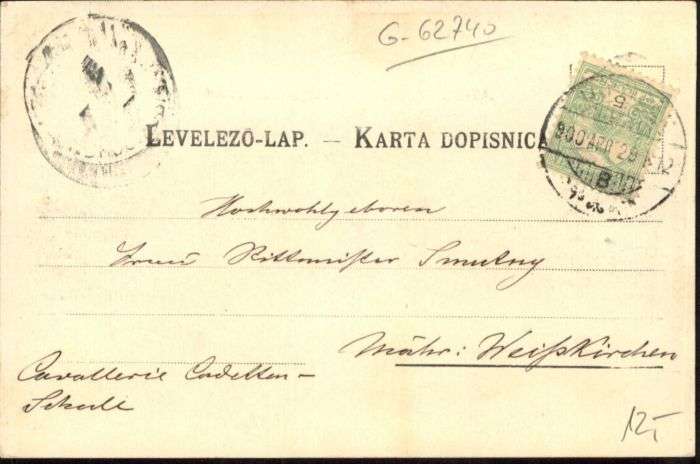 G-62740
LEVELEZŐ-LAP. — KARTA DOPISNICA
900 APR 25
Hochwohlgeboren
Frau Rittmeister Smutny
Mähr: Weißkirchen
Cavallerie Cadetten-
Schule
12,-